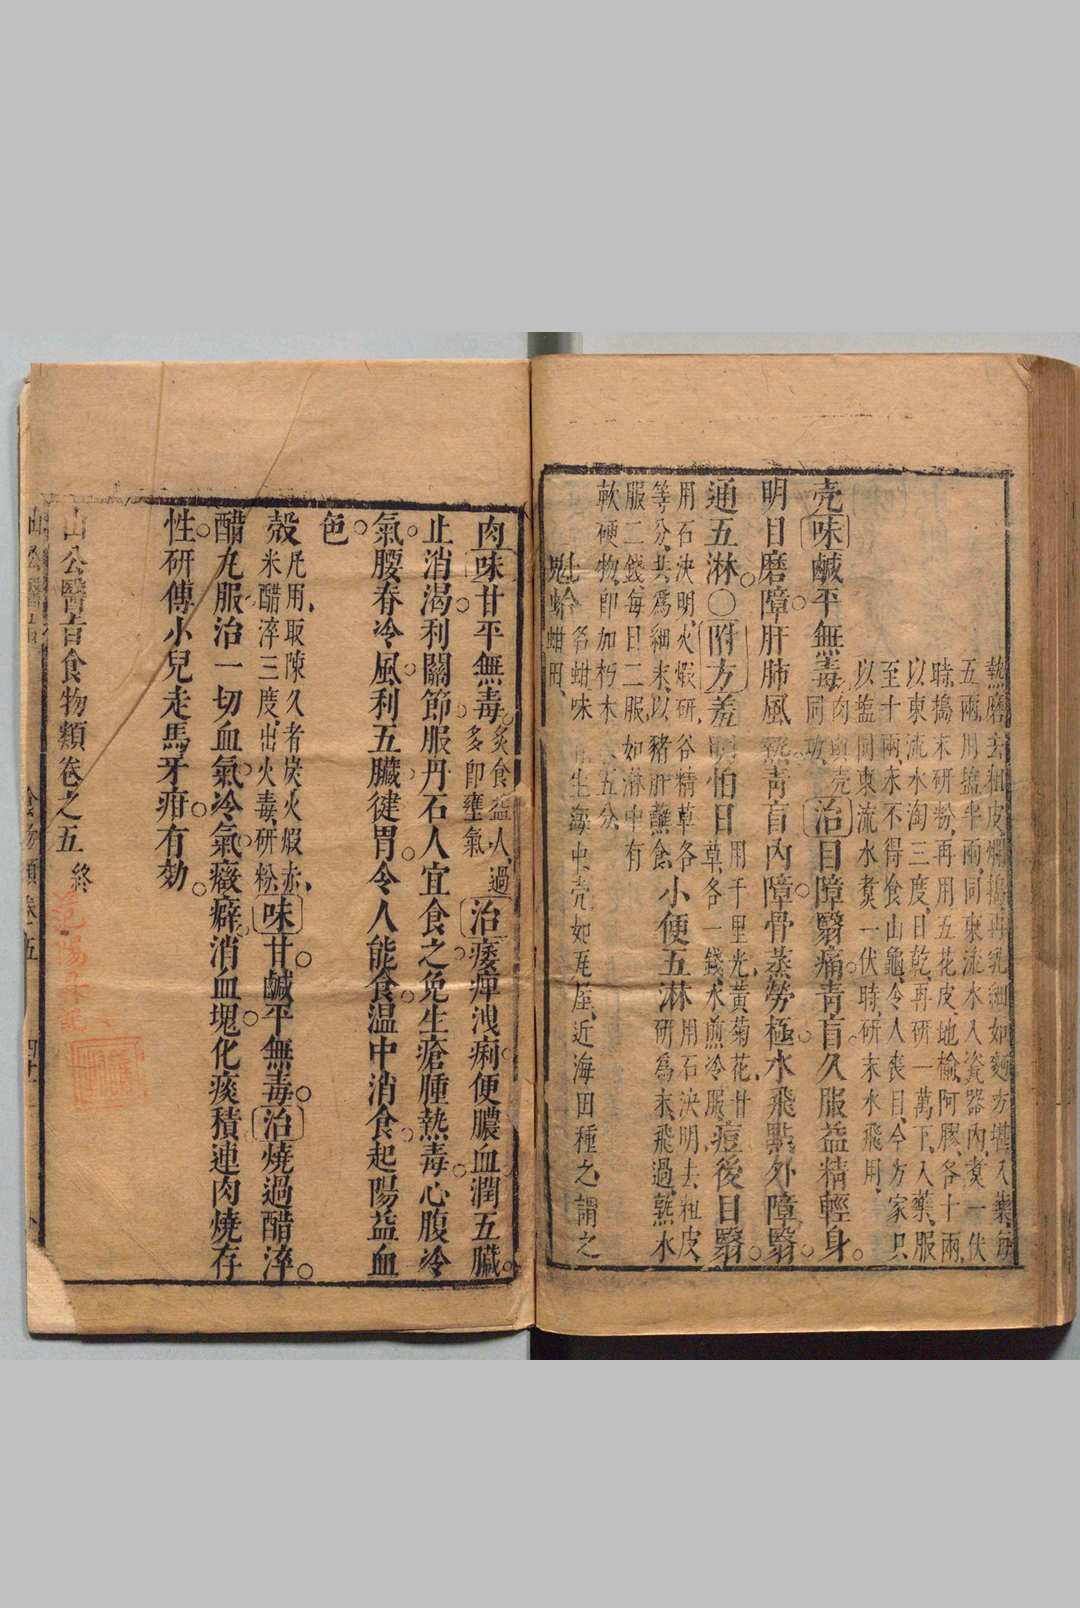 熱磨去粗皮爛搗再乳細如麵方堪入藥每
五兩用塩半兩同東流水入瓷器內煮一伏
時搗末研粉再用五花皮地榆阿膠各十兩
以東流水淘三度日乾再研一萬下入藥服
至十兩永不得食山龜令人喪目今方家只
以塩同東流水煮一伏時研末水飛用
壳味鹹平無毒肉與壳同功治目障翳痛青盲久服益精輕身
明目磨障肝肺風熱青盲內障骨蒸勞極水飛點外障翳
通五淋〇附方羞明怕日用千里光黄菊花甘草各一錢水煎冷服痘後目翳
用石決明火煅研谷精草各等分共爲細末以豬肝蘸食小便五淋用石決明去粗皮研爲末飛過熟水
服二錢每日二服如淋中有
軟硬物即加朽木末五分
魁蛤名蚶味 生海中壳如瓦屋近海田種之謂之蚶田
肉味甘平無毒炙食益人過多即壅氣治痿痺洩痢便膿血潤五臟
止消渴利關節服丹石人宜食之免生瘡腫熱毒心腹冷
氣腰脊冷風利五臟健胃令人能食温中消食起陽益血
色
殻凡用取陳久者炭火煅赤米醋淬三度出火毒研粉味甘鹹平無毒治燒過醋淬
醋丸服治一切血氣冷氣癥癖消血塊化痰積連肉燒存
性研傅小兒走馬牙疳有効
山公醫旨食物類卷之五終